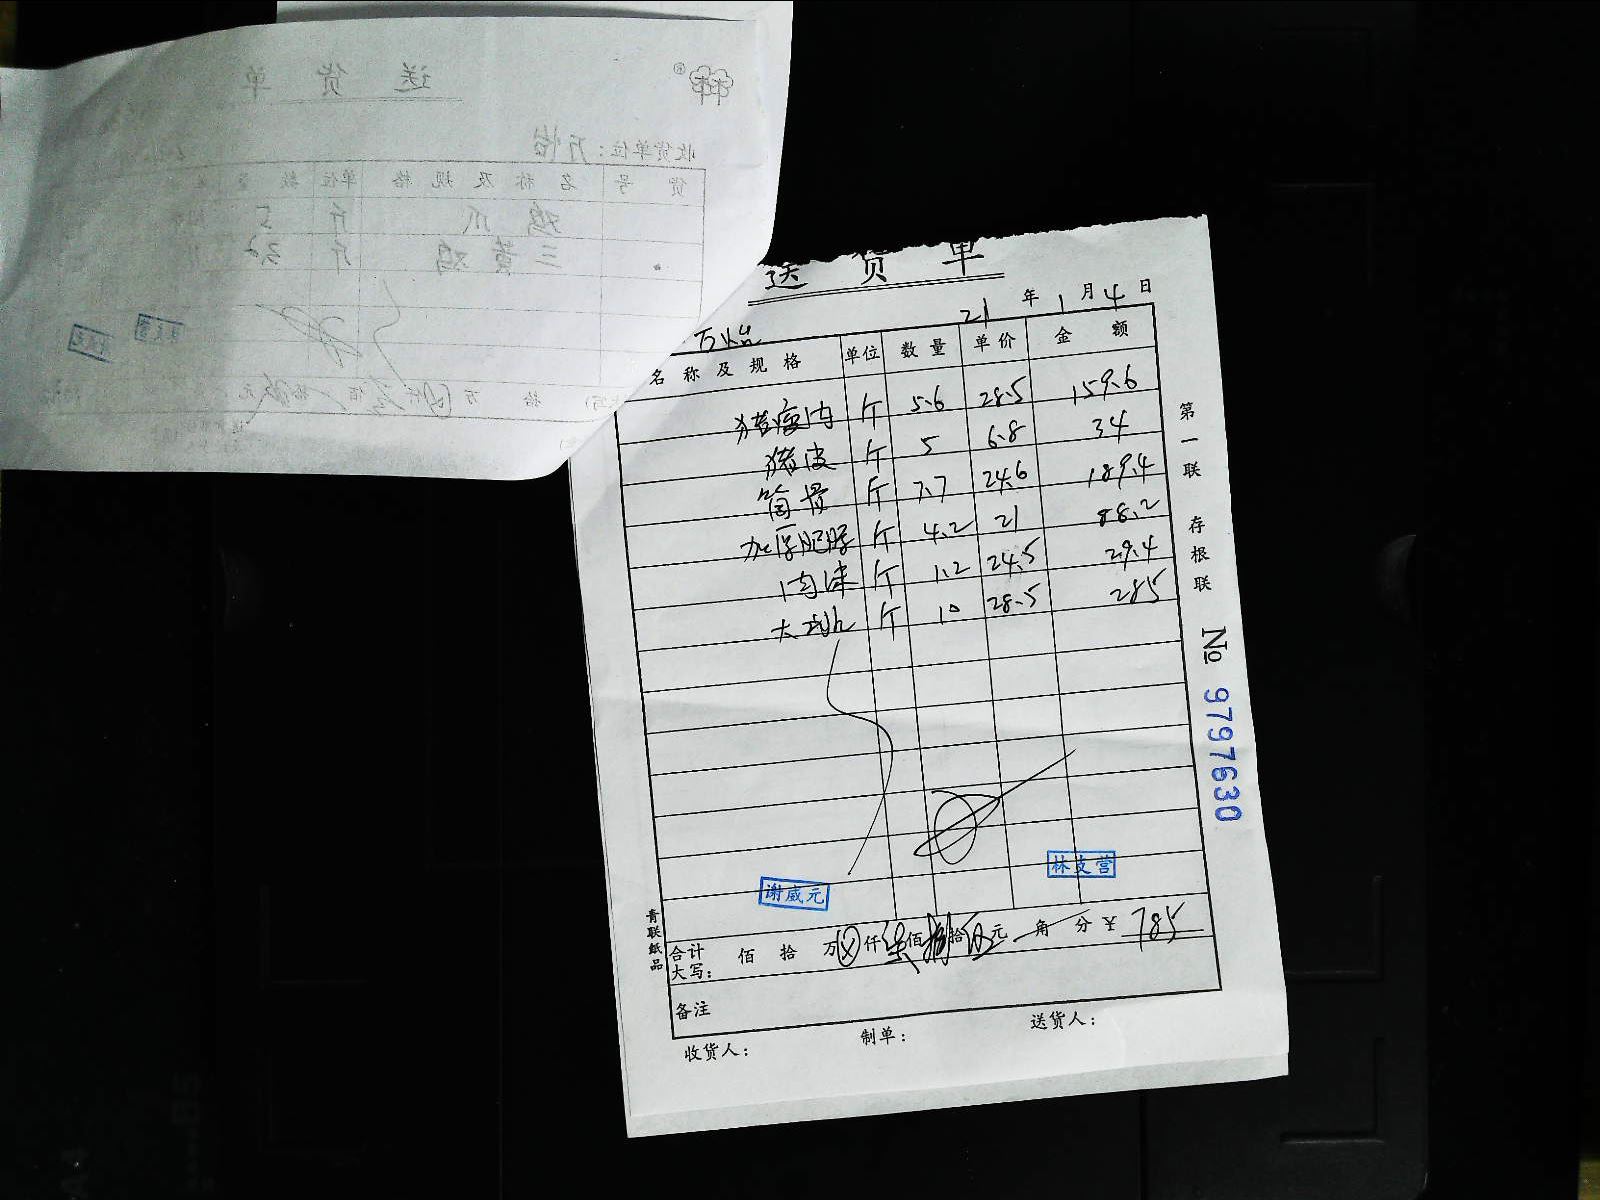 送货单
万怡
21年1月4日
名称及规格 单位 数量 单价 金额
猪瘦肉 斤 5.6 28.5 159.6
猪皮 斤 5 6.8 34
筒骨 斤 7.7 24.6 189.4
加厚肥膘 斤 4.2 21 88.2
肉沫 斤 1.2 24.5 29.4
大排 斤 10 28.5 285
谢威元
林支营
合计大写: 佰 拾 万 仟柒佰捌拾伍元 角 分 ¥ 785
备注
收货人: 制单: 送货人:
第一联 存根联
№ 9797630
青联纸品
送货单
收货单位:万怡
货号 名称及规格 单位 数量
鸡爪 斤 5
三黄鸡 斤